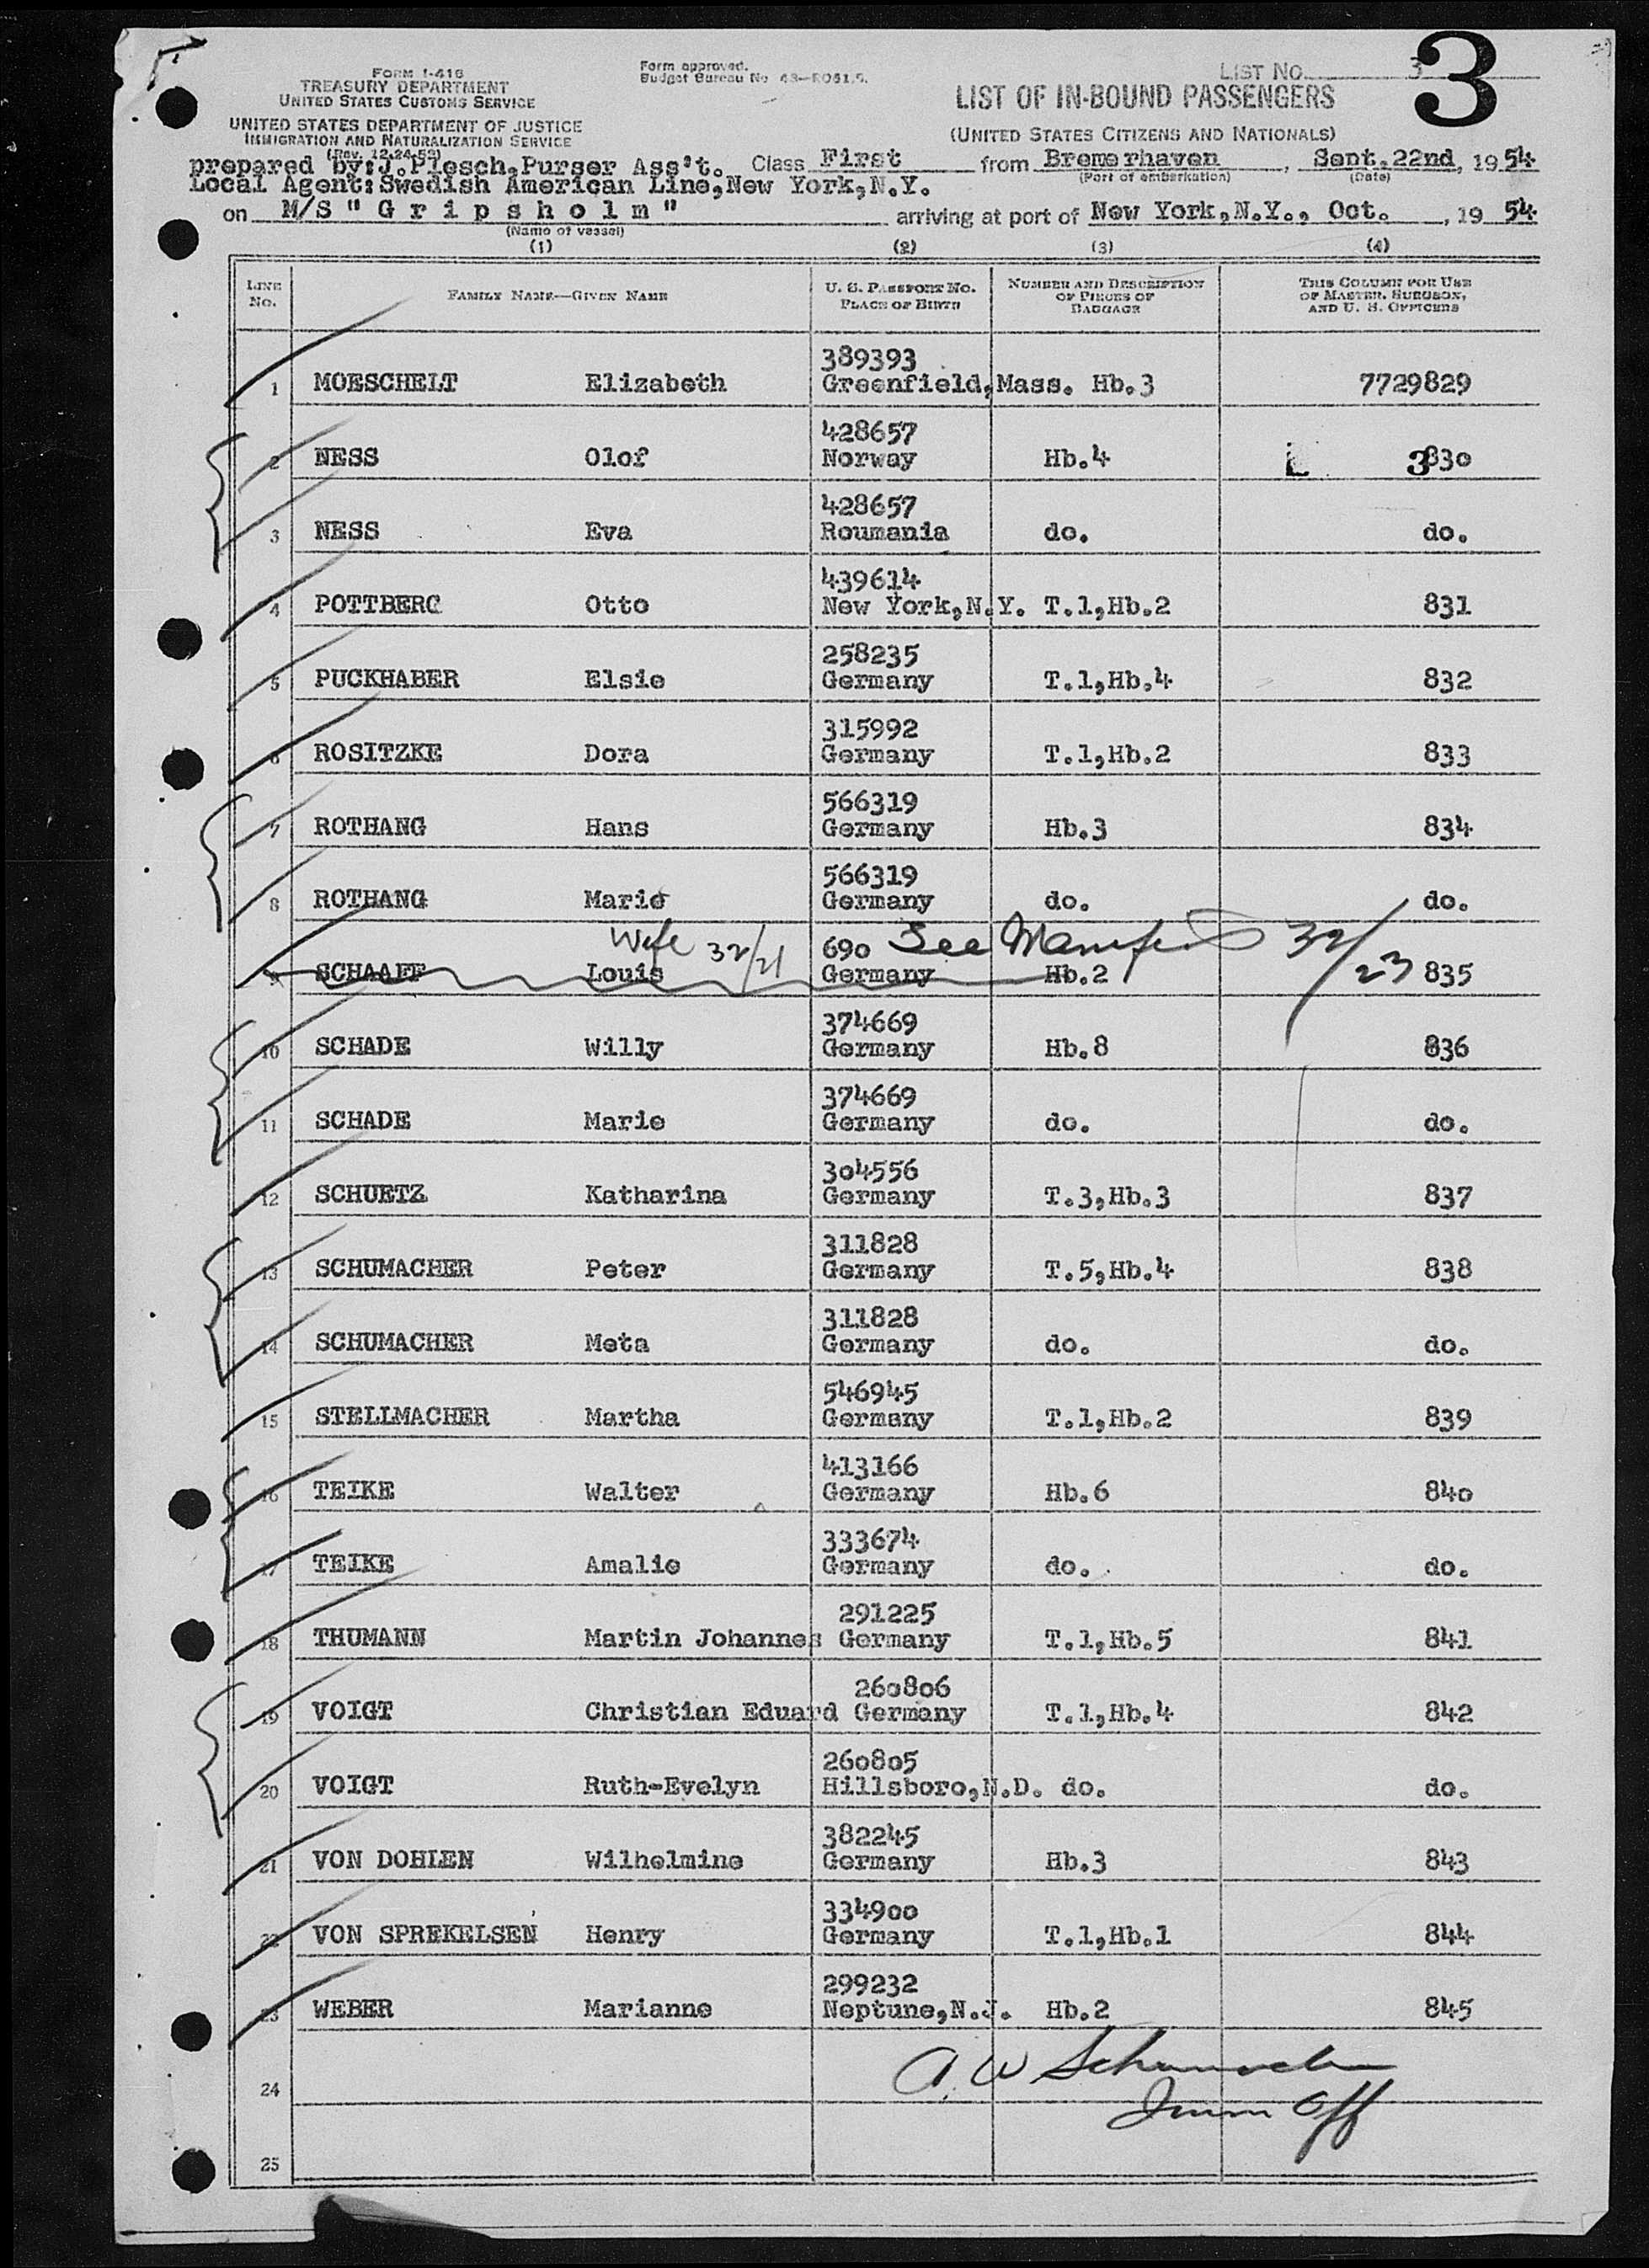 3
FORM I-418
TREASURY DEPARTMENT
UNITED STATES CUSTOMS SERVICE
UNITED STATES DEPARTMENT OF JUSTICE
IMMIGRATION AND NATURALIZATION SERVICE
(Rev. 12-24-52)
Form approved.
Budget Bureau No. 43—R061.5.
LIST No. 3
LIST OF IN-BOUND PASSENGERS
(UNITED STATES CITIZENS AND NATIONALS)
prepared by:J.Plesch,Purser Ass't. Class First from Bremerhaven, Sept.22nd, 1954
(Port of embarkation) (Date)
Local Agent:Swedish American Line,New York,N.Y.
on M/S "Gripsholm" arriving at port of New York,N.Y., Oct., 1954
(Name of vessel)
(1) (2) (3) (4)
LINE No. FAMILY NAME—GIVEN NAME U. S. PASSPORT No. PLACE OF BIRTH NUMBER AND DESCRIPTION OF PIECES OF BAGGAGE THIS COLUMN FOR USE OF MASTER, SURGEON, AND U. S. OFFICERS
389393
1 MOESCHELT Elizabeth Greenfield,Mass. Hb.3 7729829
428657
2 NESS Olof Norway Hb.4 L 3830
428657
3 NESS Eva Roumania do. do.
439614
4 POTTBERG Otto New York,N.Y. T.1,Hb.2 831
258235
5 PUCKHABER Elsie Germany T.1,Hb.4 832
315992
6 ROSITZKE Dora Germany T.1,Hb.2 833
566319
7 ROTHANG Hans Germany Hb.3 834
566319
8 ROTHANG Marie Germany do. do.
Wife 32/21 690 See Manifest 32/23
9 SCHAAFF Louis Germany Hb.2 835
374669
10 SCHADE Willy Germany Hb.8 836
374669
11 SCHADE Marie Germany do. do.
304556
12 SCHUETZ Katharina Germany T.3,Hb.3 837
311828
13 SCHUMACHER Peter Germany T.5,Hb.4 838
311828
14 SCHUMACHER Meta Germany do. do.
546945
15 STELLMACHER Martha Germany T.1,Hb.2 839
413166
16 TEIKE Walter Germany Hb.6 840
333674
17 TEIKE Amalie Germany do. do.
291225
18 THUMANN Martin Johannes Germany T.1,Hb.5 841
260806
19 VOIGT Christian Eduard Germany T.1,Hb.4 842
260805
20 VOIGT Ruth-Evelyn Hillsboro,N.D. do. do.
382245
21 VON DOHLEN Wilhelmine Germany Hb.3 843
334900
22 VON SPREKELSEN Henry Germany T.1,Hb.1 844
299232
23 WEBER Marianne Neptune,N.J. Hb.2 845
A. W Schumacher
24
Imm Off
25